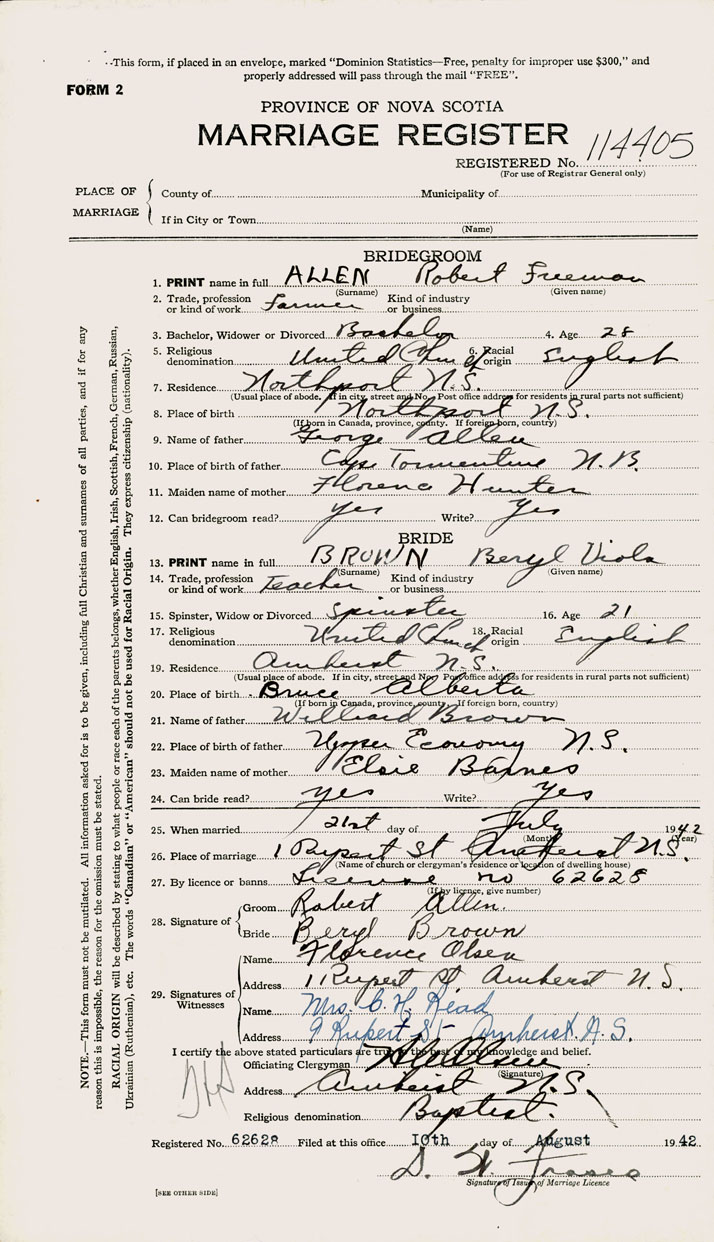 This form, if placed in an envelope, marked “Dominion Statistics—Free, penalty for improper use $300,” and
properly addressed will pass through the mail “FREE”.
FORM 2
PROVINCE OF NOVA SCOTIA
MARRIAGE REGISTER
REGISTERED No. 114405
(For use of Registrar General only)
PLACE OF MARRIAGE
County of Municipality of
If in City or Town
(Name)
BRIDEGROOM
1. PRINT name in full ALLEN Robert Freeman
(Surname) (Given name)
2. Trade, profession or kind of work Farmer Kind of industry or business
3. Bachelor, Widower or Divorced Bachelor 4. Age 28
5. Religious denomination United Church 6. Racial origin English
7. Residence Northport N.S.
(Usual place of abode. If in city, street and No. Post office address for residents in rural parts not sufficient)
8. Place of birth Northport N.S.
(If born in Canada, province, county. If foreign born, country)
9. Name of father George Allen
10. Place of birth of father Cape Tormentine N.B.
11. Maiden name of mother Florence Hunter
12. Can bridegroom read? yes Write? Yes
BRIDE
13. PRINT name in full BROWN Beryl Viola
(Surname) (Given name)
14. Trade, profession or kind of work Teacher Kind of industry or business
15. Spinster, Widow or Divorced Spinster 16. Age 21
17. Religious denomination United Church 18. Racial origin English
19. Residence Amherst N.S.
(Usual place of abode. If in city, street and No. Post office address for residents in rural parts not sufficient)
20. Place of birth Bruce Alberta
(If born in Canada, province, county. If foreign born, country)
21. Name of father Williard Brown
22. Place of birth of father Upper Economy N.S.
23. Maiden name of mother Elsie Barnes
24. Can bride read? yes Write? Yes
25. When married 21st day of July 1942
(Month) (Year)
26. Place of marriage Rupert St Amherst N.S.
(Name of church or clergyman's residence or location of dwelling house)
27. By licence or banns License no 62628
(If by licence, give number)
28. Signature of
Groom Robert Allen.
Bride Beryl Brown
29. Signatures of Witnesses
Name Florence Olsen
Address 11 Rupert St. Amherst N.S.
Name Mrs. C. H. Read
Address 9 Rupert St- Amherst N.S.
I certify the above stated particulars are true to the best of my knowledge and belief.
Officiating Clergyman Olsen
(Signature)
Address Amherst N.S.
Religious denomination Baptist.
Registered No. 62628 Filed at this office 10th day of August 1942
Signature of Issuer of Marriage Licence
[SEE OTHER SIDE]
NOTE.—This form must not be mutilated. All information asked for is to be given, including full Christian and surnames of all parties, and if for any
reason this is impossible, the reason for the omission must be stated.
RACIAL ORIGIN will be described by stating to what people or race each of the parents belongs, whether English, Irish, Scottish, French, German, Russian,
Ukrainian (Ruthenian), etc. The words “Canadian” or “American” should not be used for Racial Origin. They express citizenship (nationality).